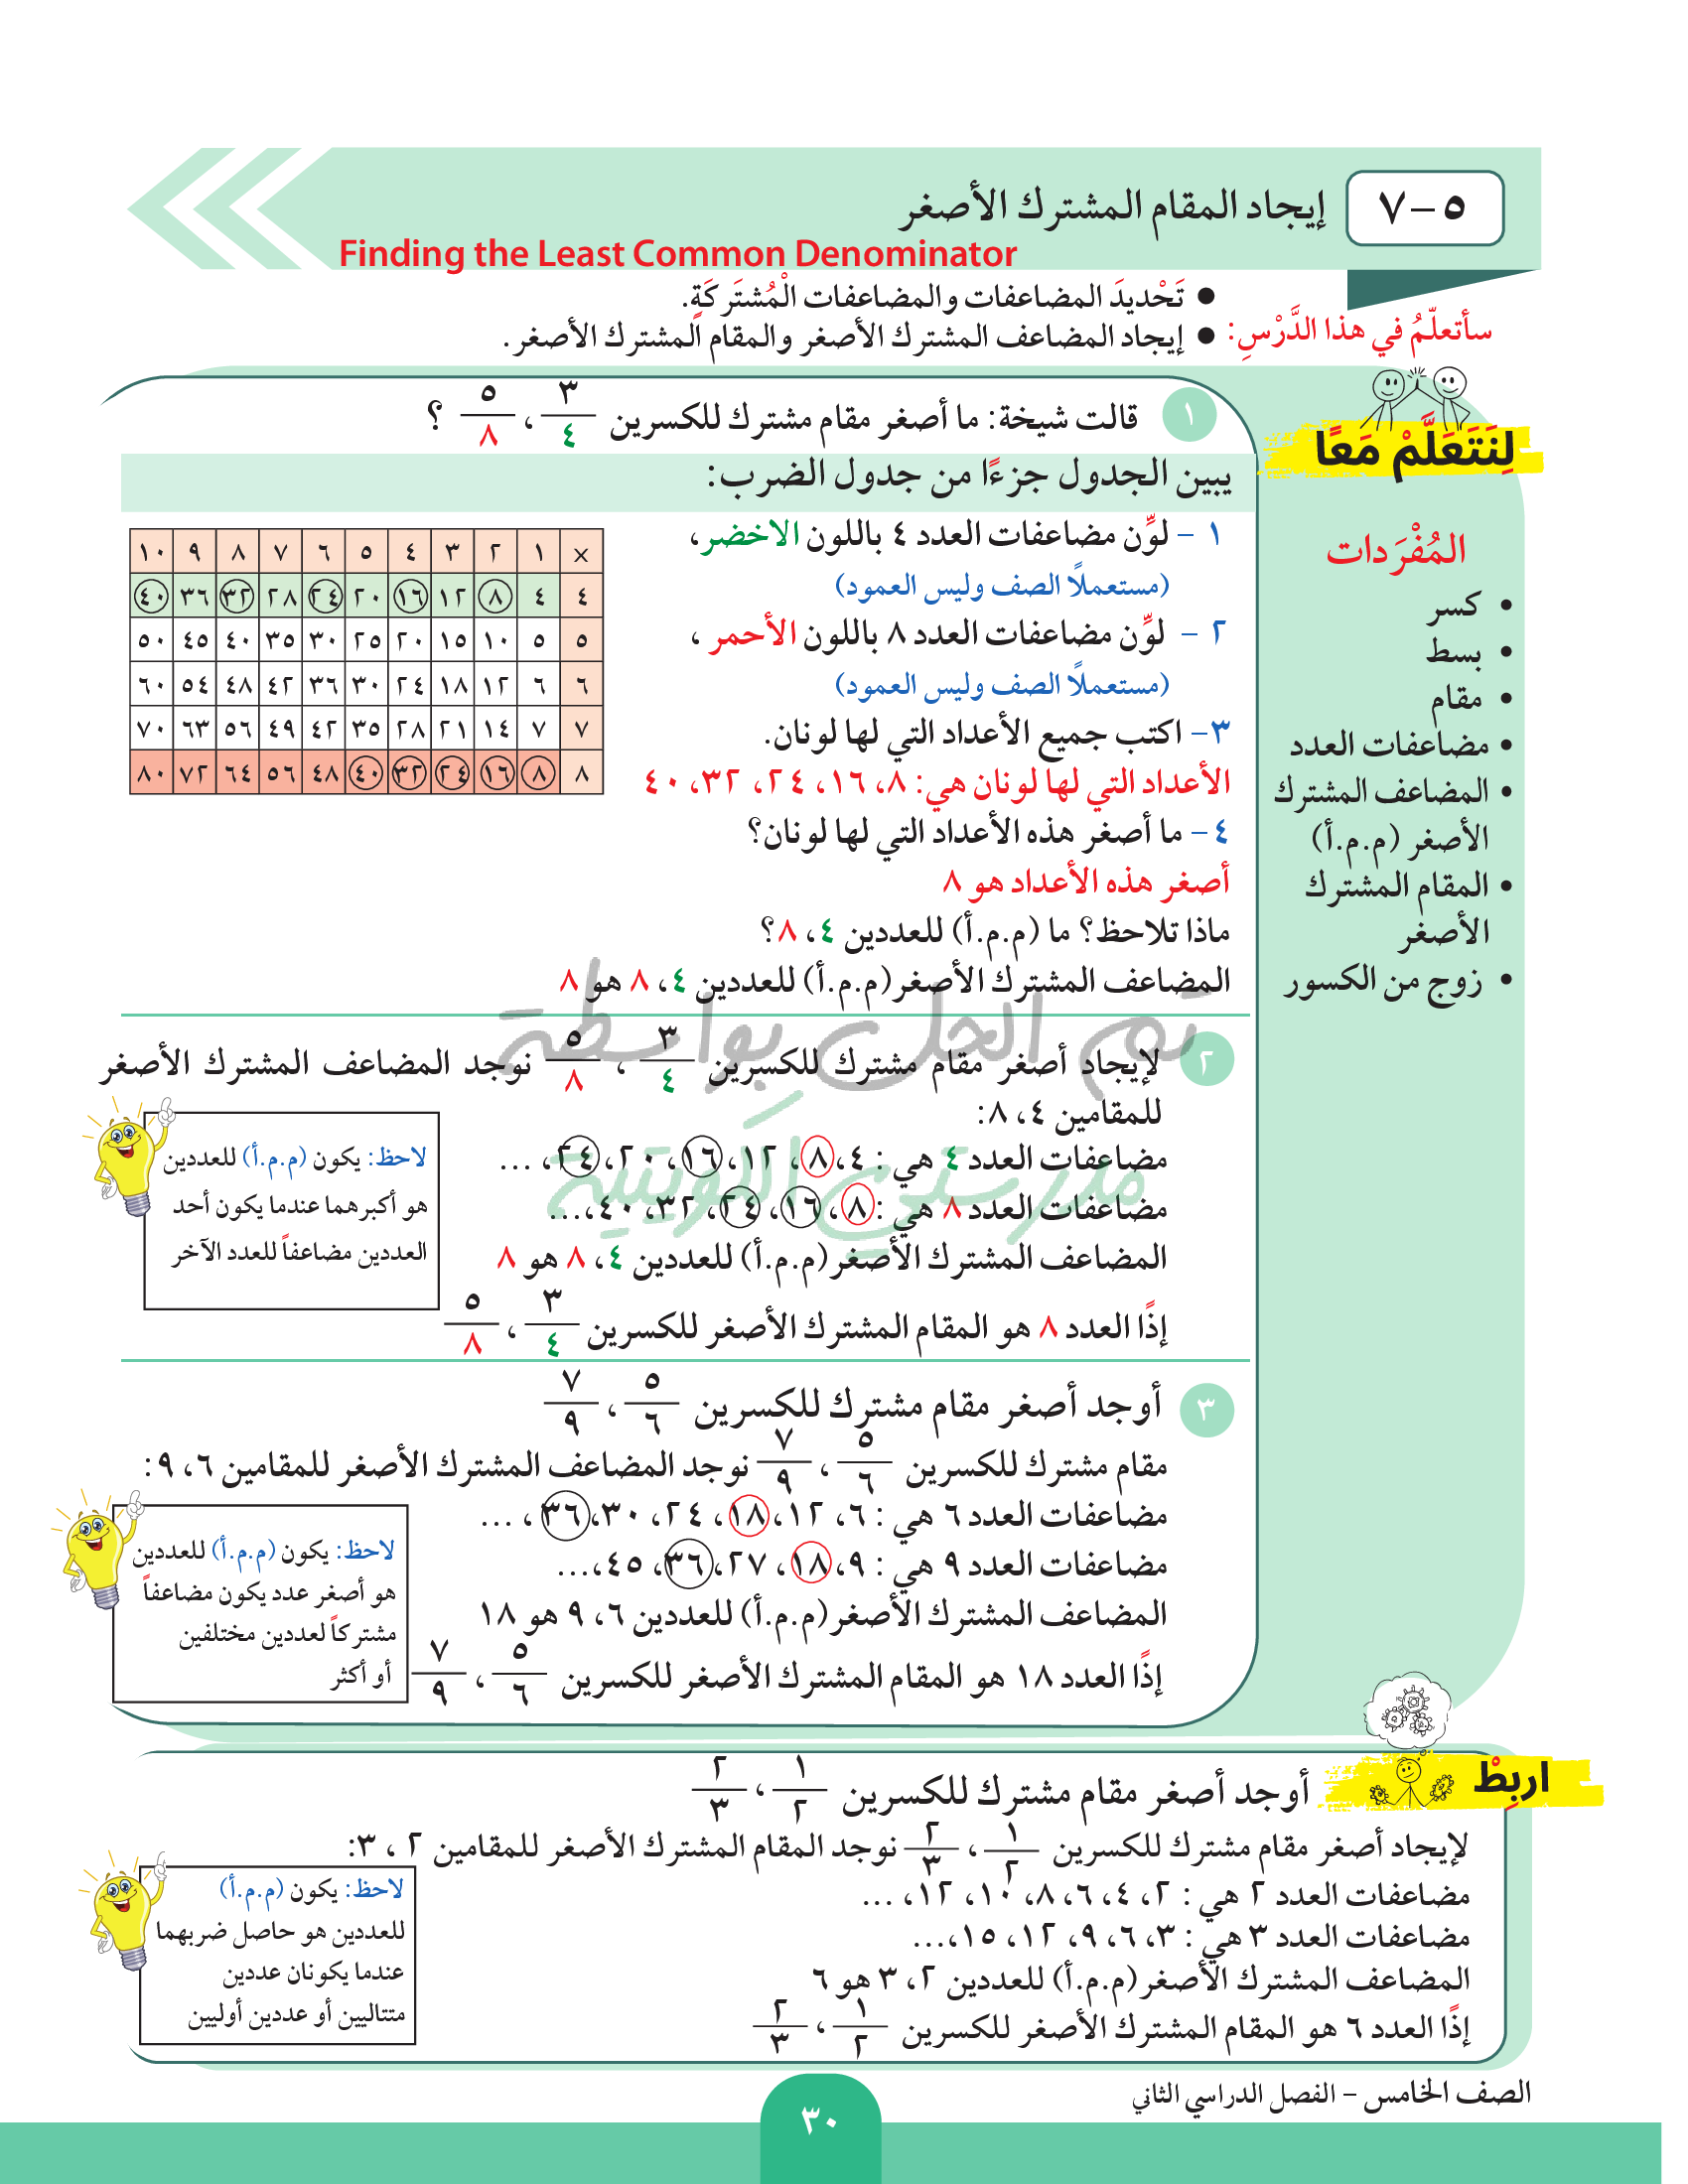 ٥–٧
إيجاد المقام المشترك الأصغر
Finding the Least Common Denominator
سأتعلّمُ في هذا الدَّرْسِ:
● تَحْديدَ المضاعفات والمضاعفات الْمُشتَركَةِ.
● إيجاد المضاعف المشترك الأصغر والمقام المشترك الأصغر.
لِنَتَعَلَّمْ مَعًا
المُفْرَدات
• كسر
• بسط
• مقام
• مضاعفات العدد
• المضاعف المشترك
الأصغر (م.م.أ)
• المقام المشترك
الأصغر
• زوج من الكسور
١ قالت شيخة: ما أصغر مقام مشترك للكسرين ٣/٤ ، ٥/٨ ؟
يبين الجدول جزءًا من جدول الضرب:
١ – لوِّن مضاعفات العدد ٤ باللون الاخضر،
(مستعملًا الصف وليس العمود)
٢ – لوِّن مضاعفات العدد ٨ باللون الأحمر ،
(مستعملًا الصف وليس العمود)
٣– اكتب جميع الأعداد التي لها لونان.
الأعداد التي لها لونان هي: ٨، ١٦، ٢٤، ٣٢، ٤٠
٤– ما أصغر هذه الأعداد التي لها لونان؟
أصغر هذه الأعداد هو ٨
ماذا تلاحظ؟ ما (م.م.أ) للعددين ٤، ٨؟
المضاعف المشترك الأصغر(م.م.أ) للعددين ٤، ٨ هو ٨
× ١ ٢ ٣ ٤ ٥ ٦ ٧ ٨ ٩ ١٠
٤ ٤ ٨ ١٢ ١٦ ٢٠ ٢٤ ٢٨ ٣٢ ٣٦ ٤٠
٥ ٥ ١٠ ١٥ ٢٠ ٢٥ ٣٠ ٣٥ ٤٠ ٤٥ ٥٠
٦ ٦ ١٢ ١٨ ٢٤ ٣٠ ٣٦ ٤٢ ٤٨ ٥٤ ٦٠
٧ ٧ ١٤ ٢١ ٢٨ ٣٥ ٤٢ ٤٩ ٥٦ ٦٣ ٧٠
٨ ٨ ١٦ ٢٤ ٣٢ ٤٠ ٤٨ ٥٦ ٦٤ ٧٢ ٨٠
تم الحل بواسطة
مدرستي الكويتية
٢ لإيجاد أصغر مقام مشترك للكسرين ٣/٤ ، ٥/٨ نوجد المضاعف المشترك الأصغر
للمقامين ٤، ٨:
مضاعفات العدد ٤ هي : ٤، ٨، ١٢، ١٦، ٢٠، ٢٤، ...
مضاعفات العدد ٨ هي : ٨، ١٦، ٢٤، ٣٢، ٤٠،...
المضاعف المشترك الأصغر(م.م.أ) للعددين ٤، ٨ هو ٨
إذًا العدد ٨ هو المقام المشترك الأصغر للكسرين ٣/٤ ، ٥/٨
لاحظ: يكون (م.م.أ) للعددين
هو أكبرهما عندما يكون أحد
العددين مضاعفاً للعدد الآخر
٣ أوجد أصغر مقام مشترك للكسرين ٥/٦ ، ٧/٩
مقام مشترك للكسرين ٥/٦ ، ٧/٩ نوجد المضاعف المشترك الأصغر للمقامين ٦، ٩:
مضاعفات العدد ٦ هي : ٦، ١٢، ١٨، ٢٤، ٣٠، ٣٦، ...
مضاعفات العدد ٩ هي : ٩، ١٨، ٢٧، ٣٦، ٤٥،...
المضاعف المشترك الأصغر(م.م.أ) للعددين ٦، ٩ هو ١٨
إذًا العدد ١٨ هو المقام المشترك الأصغر للكسرين ٥/٦ ، ٧/٩
لاحظ: يكون (م.م.أ) للعددين
هو أصغر عدد يكون مضاعفاً
مشتركاً لعددين مختلفين
أو أكثر
اربِطْ
أوجد أصغر مقام مشترك للكسرين ١/٢ ، ٢/٣
لإيجاد أصغر مقام مشترك للكسرين ١/٢ ، ٢/٣ نوجد المقام المشترك الأصغر للمقامين ٢ ، ٣:
مضاعفات العدد ٢ هي : ٢، ٤، ٦، ٨، ١٠، ١٢، ...
مضاعفات العدد ٣ هي : ٣، ٦، ٩، ١٢، ١٥،...
المضاعف المشترك الأصغر(م.م.أ) للعددين ٢، ٣ هو ٦
إذًا العدد ٦ هو المقام المشترك الأصغر للكسرين ١/٢ ، ٢/٣
لاحظ: يكون (م.م.أ)
للعددين هو حاصل ضربهما
عندما يكونان عددين
متتاليين أو عددين أوليين
الصف الخامس – الفصل الدراسي الثاني
٣٠